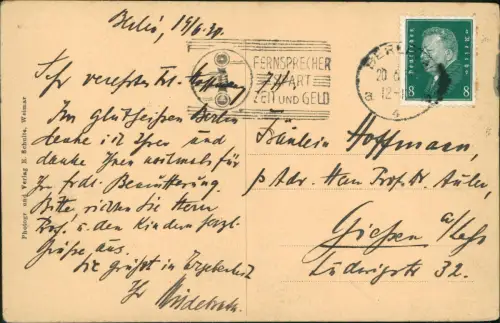 Berlin, 19/6.30.
Sehr verehrtes Frl. Hoffmann,
Im glühheißen Berlin
denke ich Ihrer und
danke Ihnen nochmals für
Ihr frdl.
Bitte, richten Sie Herrn
Prof. u. den Kindern herzl.
Grüße aus.
Sie grüßt in Ergebenheit
Ihr
FERNSPRECHER
SPART
ZEIT UND GELD
BERLIN
20.6
12-1
Deutsches Reich
8 8
Fräulein Hoffmann,
p. Adr. Herrn Prof. Dr.
Gießen a/Lahn
Ludwigstr. 32.
Photogr. und Verlag E. Schulte, Weimar